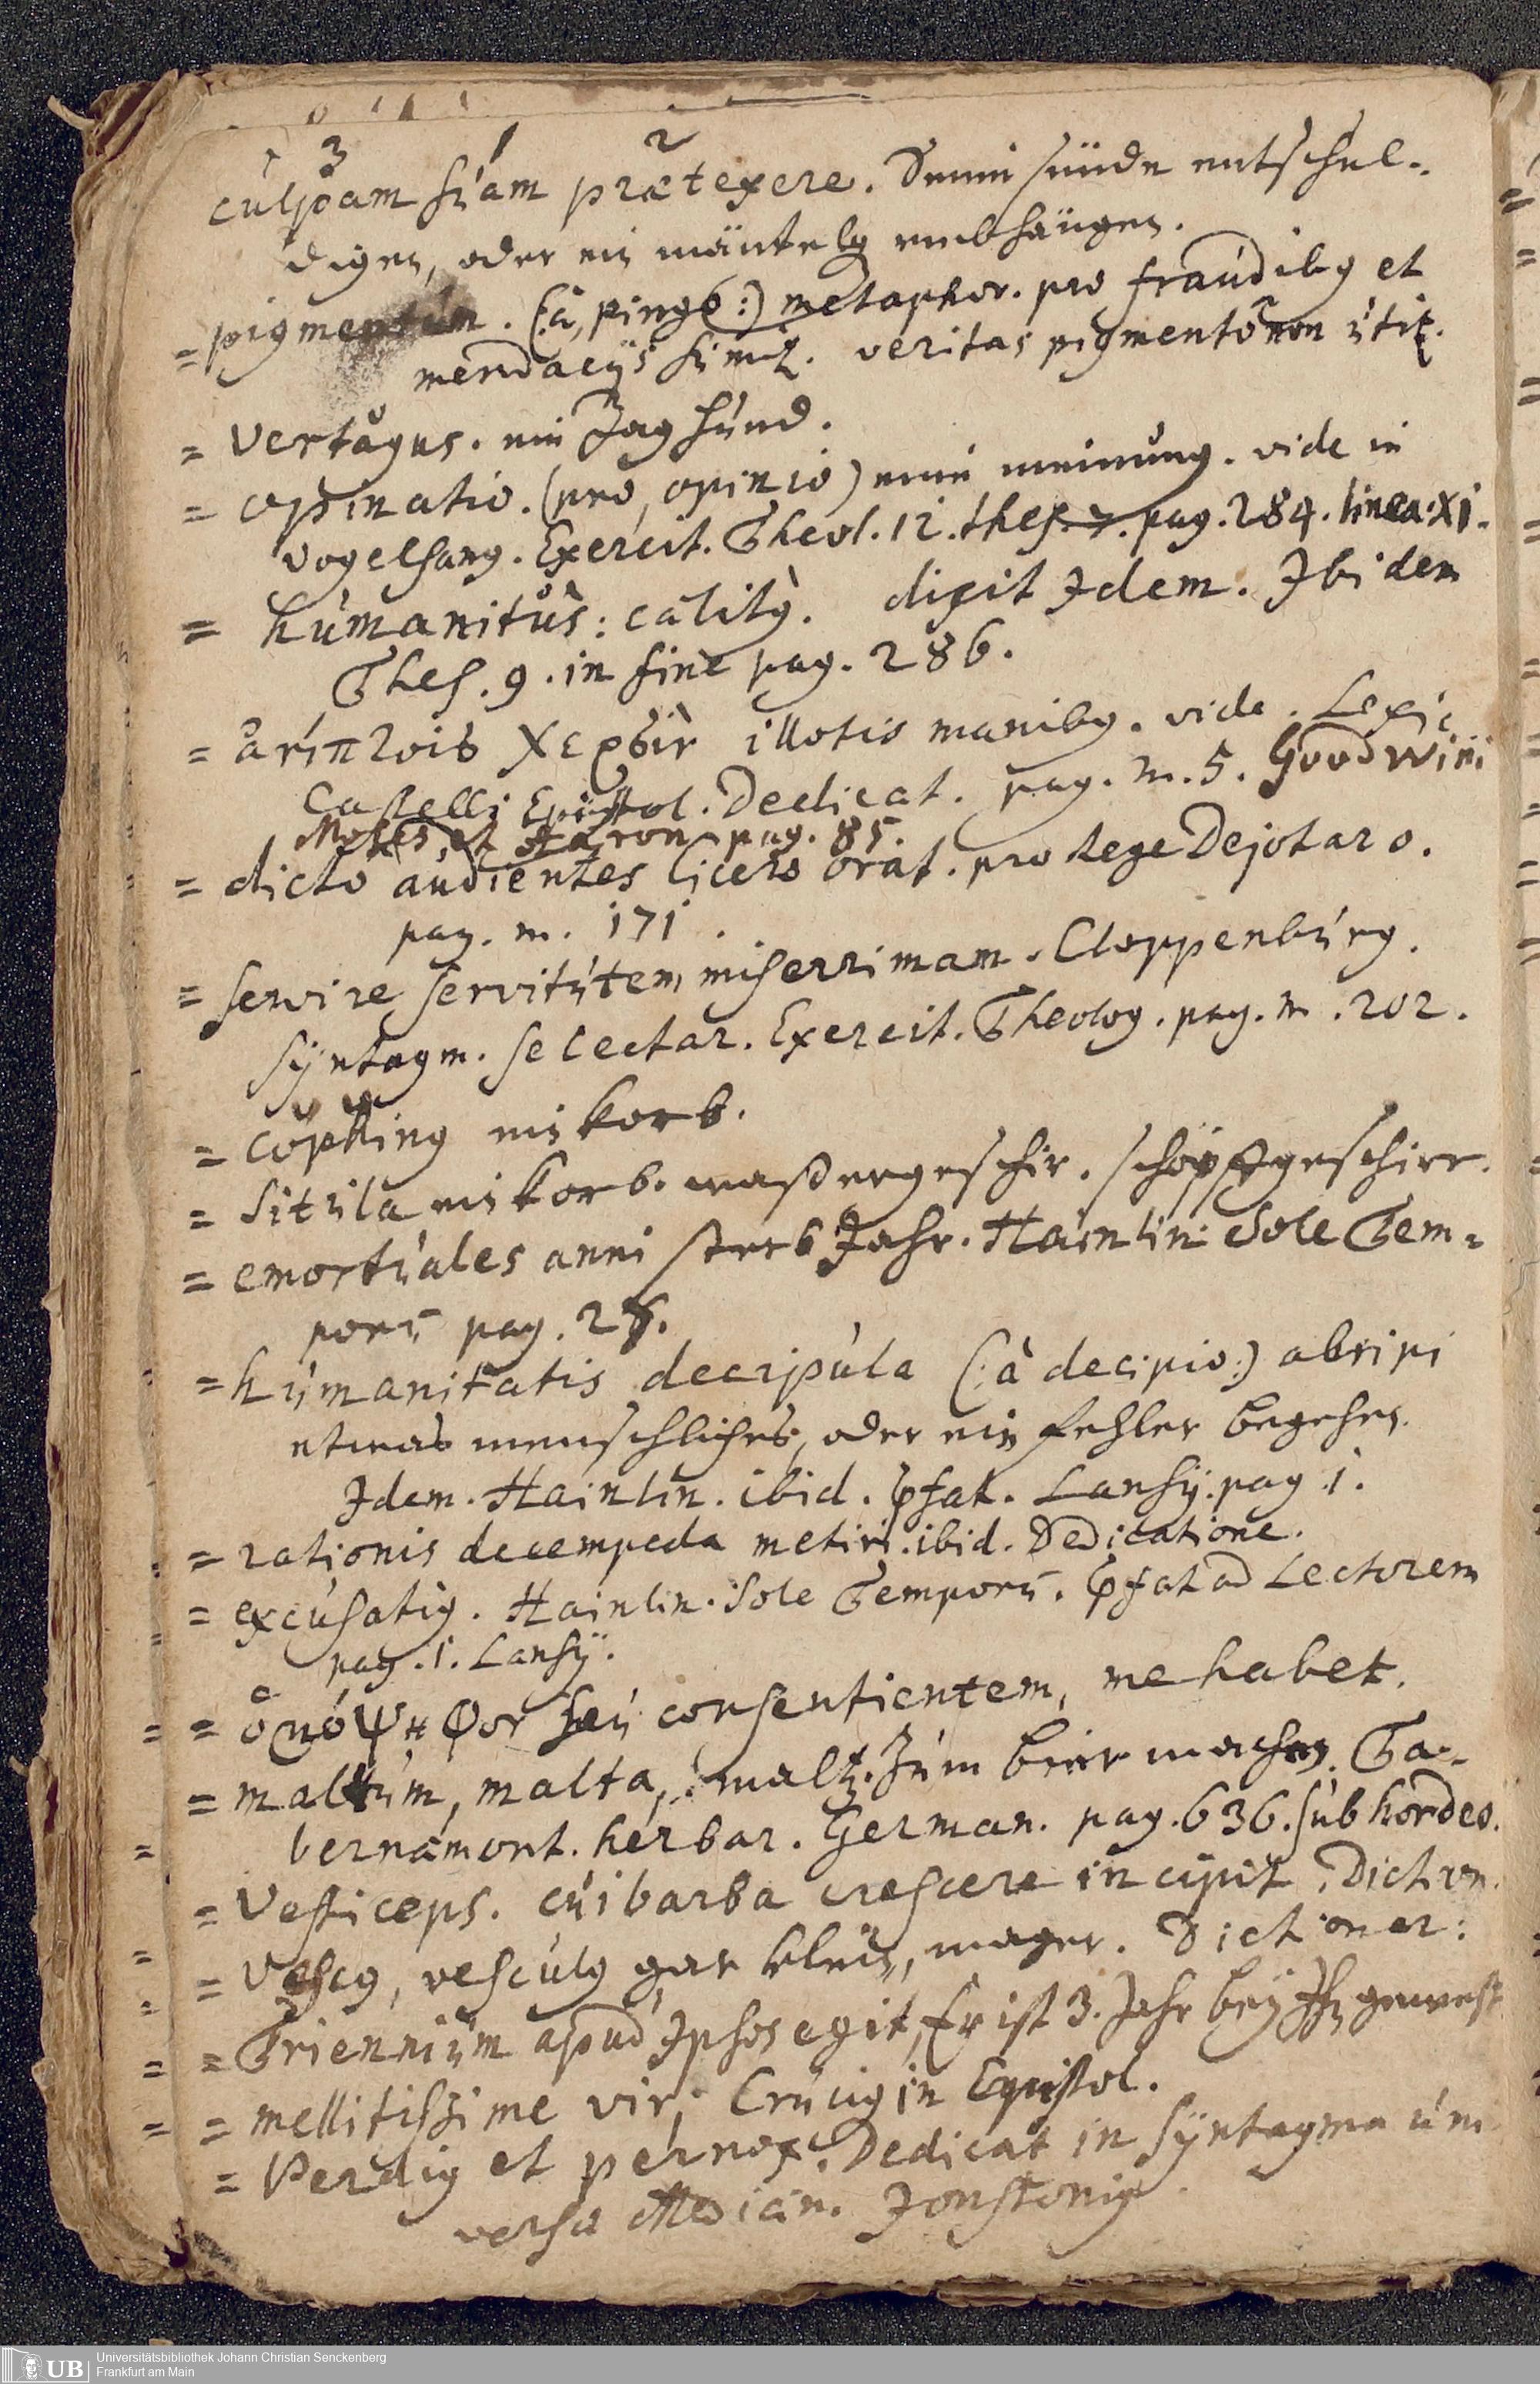 3 1 2
culpam suam prætexere. Seine sünde entschul-
digen, oder ein mäntelg umbhängen.
= pigmentum. (: à, pingo :) metaphor. pro fraudibg et
mendacijs sumit. veritas pigmento non utit.
= vertagus. ein Jaghund.
= opinatio. (pro, opinio) eine meinung. vide in
vogelsang. Exercit. Theol. 12. thes. 7. pag. 284. linea. xi.
= humanitùs: calitg. dixit Idem. Ibidem
Thes. 9. in fine pag. 286.
= ἀνίπτοις χερσὶν illotis manibg. vide. Lexic
Castelli Epistol. Dedicat. pag. m. 5. Goodwini
Moses et Aaron pag. 85.
= dicto audientes Cicero orat. pro rege Dejotaro.
pag. m. 171.
= servire servitutem miserrimam. Cloppenburg.
Sÿntagm. selectar. Exercit. Theolog. pag. m. 202.
= cophing ein korb.
= situla ein korb. waßergeschir. schöpffgeschirr.
= emortuales anni sterb Jahr. Hainlin Sole Tem-
porū pag. 28.
= humanitatis decipula (: à decipio :) abripi
etwas menschliches, oder ein fehler begehen.
Idem. Hainlin. ibid. pfat. Lansÿ. pag. 1.
= rationis decempeda metiri. ibid. Dedicatione.
= excusatig. Hainlin. Sole Temporū. pfat ad Lectorem
pag. 1. Lansÿ.
= ὁμόψηφον seu consentientem, me habet.
= maltum, malta, maltz. Zum bier machen. Ta-
bernæmont. herbar. German. pag. 636. sub hordeo.
= Vesticeps. cui barba crescere incipit, Diction.
= Vescg, vesculg gar klein, mager. Dictioner:
= Triennium apud Ipsos egit, Er ist 3. Jahr beÿ Ihn gewest
= mellitissime vir, Crucig in Epistol.
= Perdig et pernox. Dedicat in Sÿntagma uni
versæ Medicin. Jonstonig.
Universitätsbibliothek Johann Christian Senckenberg
UB Frankfurt am Main